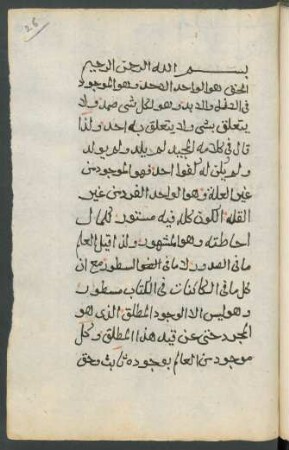 26
بسم الله الرحمن الرحيم
الحق هو الواحد الاحد وهو الموجود
في الازل والابد وهو لكل شي صمد ولا
يتعلق بشي ولا يتعلق به احد ولذا
قال في كلامه المجيد لم يلد ولم يولد
ولم يكن له كفوا احد فهو الموجود من
غير العلة وهو الواحد الفرد من غير
القلة الكون كله فيه مستور فكمال
احاطته وهو المشهور ولذا قيل العلم
ما في الصدور لا ما في السطور مع ان
كل ما في الكائنات في الكتاب مسطور
وهو ليس الا الوجود المطلق الذي هو
المجرد حتى عن قيد هذا المطلق وكل
موجود من العالم بوجوده ثابت وحق